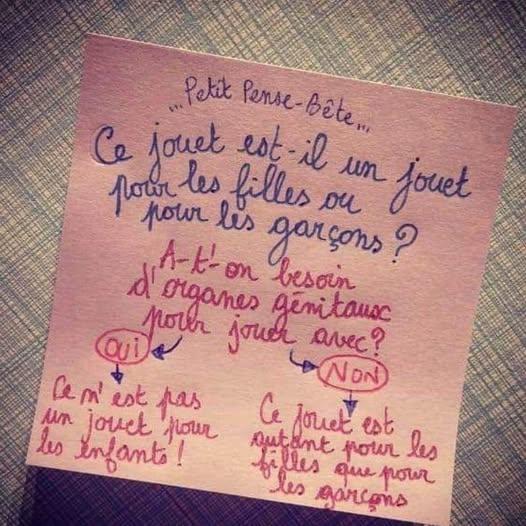 ...Petit Pense-Bête...
Ce jouet est-il un jouet
pour les filles ou
pour les garçons ?
A-t'-on besoin
d'organes génitaux
pour jouer avec ?
OUI
NON
Ce n'est pas
un jouet pour
les enfants !
Ce jouet est
autant pour les
filles que pour
les garçons